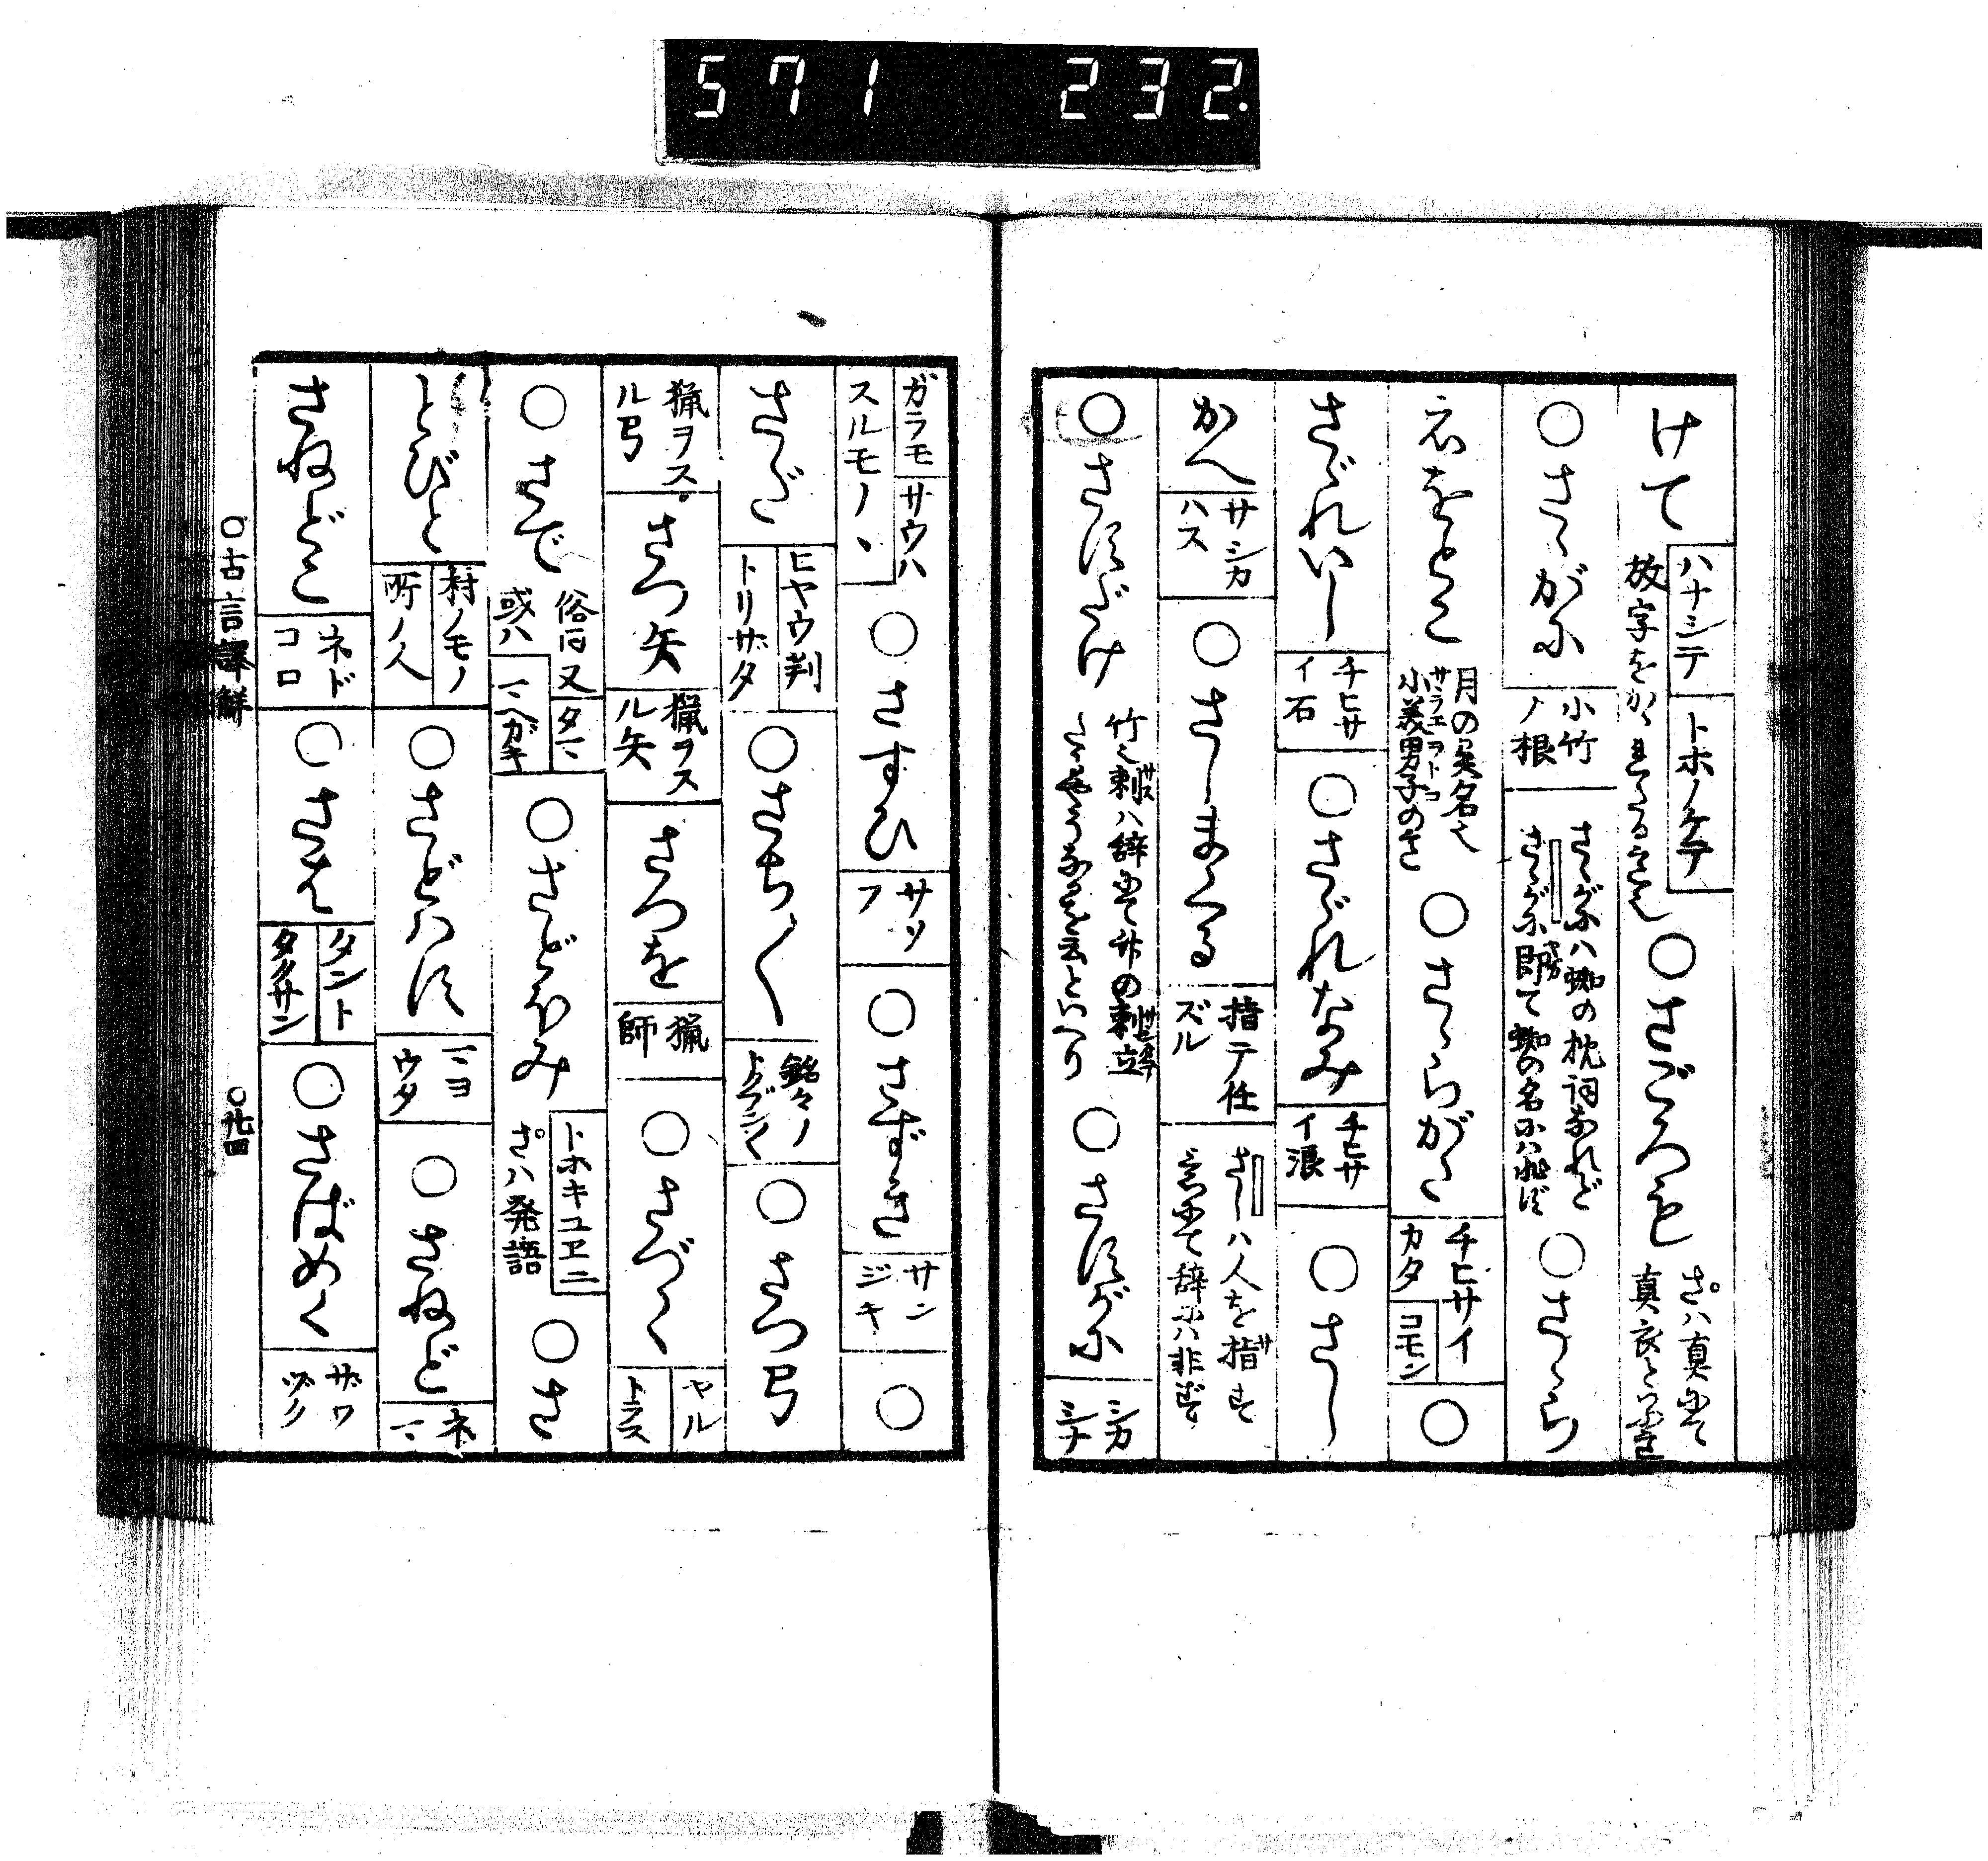 571 232.
けて ハナシテ トホノケテ 放字をかゝれたる意也 ○さごろも さハ真にて真衣といふ
○さゝがに 小竹ノ根 さゝがにハ蜘の枕詞なれど さゝがに即て蜘の名にハ非ず ○さゝら
えをとこ 月の異名也 小美男子のさ サラエヲトコ ○さゝらがた チヒサイカタ コモン ○
さゞれいし チヒサイ石 ○さゞれなみ チヒサイ浪 ○さし
かへ サシカハス ○さしまくる 指テ任ズル さしハ人を指す意にて辞にハ非ず
○さすだけ ○さすがに シカシナ
ガラモ サウハスルモノヽ ○さすひ サソフ ○さずき サンジキ ○
さだ ヒヤウ判 トリザタ ○さち〴〵 銘々ノトクブン〳〵 ○さつ弓
猟ヲスル弓 さつ矢 猟ヲスル矢 さつを 猟師 ○さづく ヤル トラス
○さで 俗ニ又タマ 或ハ マヘガキ ○さどほみ トホキユヱニ さハ発語 ○さ
とびと 村ノモノ 所ノ人 ○さどはす マヨウタ ○さねど ネマ
さねどこ ネドコロ ○さは タント タクサン ○さばめく ザワヅク
○古言譯解 ○廿四